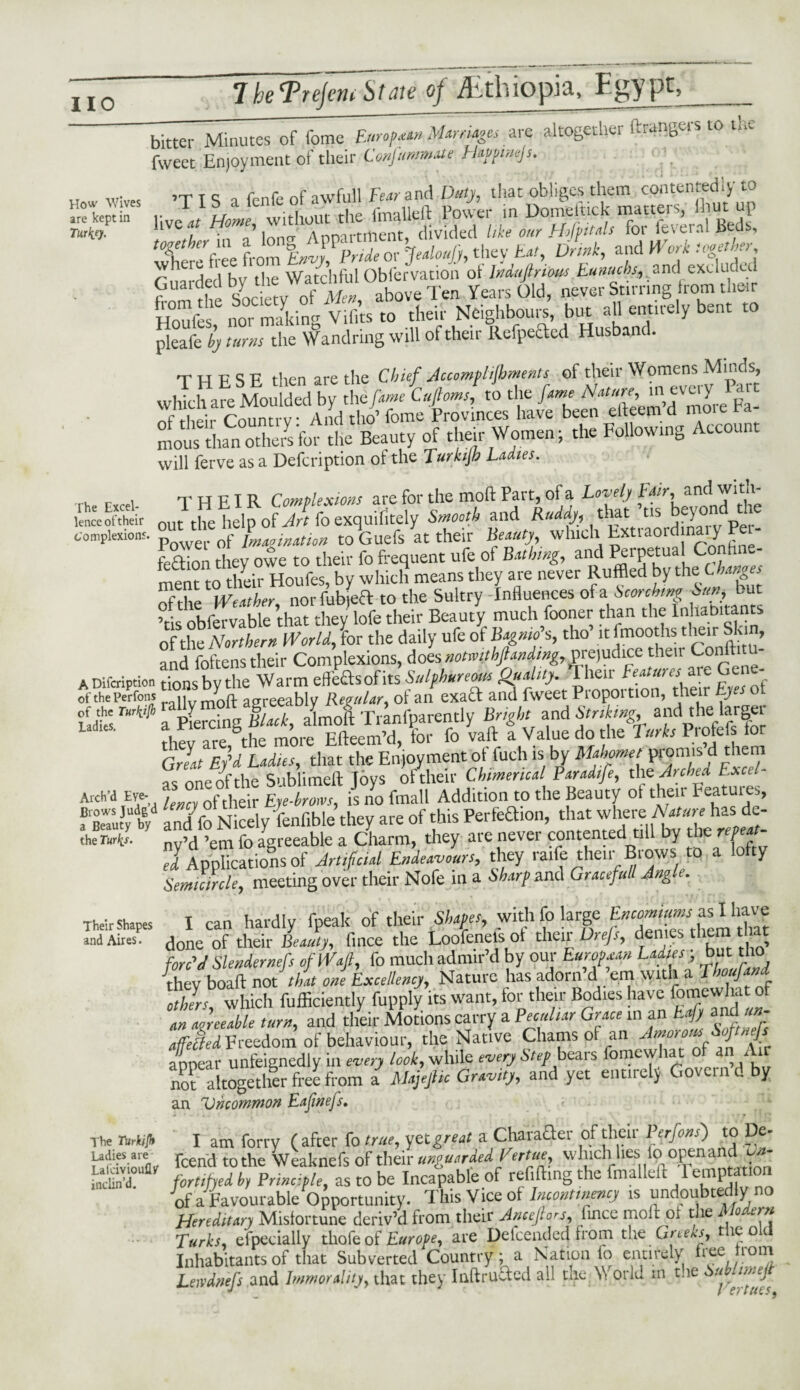 110
The Preſent State of Æthiopia, Egypt,
bitter Minutes of ſome European Marriages are altogether ſtrangers to the
ſweet Enjoyment of their Conſummate Happineſs.
How Wives
are kept in
Turkey.
'TIS a ſenſe of awfull Fear and Duty, that obliges them contentedly to
live at Home, without the ſmalleſt Power in Domeſtick matters, ſhut up
together in a long Appartment, divided like our Hoſpitals for ſeveral Beds,
where free from Envy, Pride or Jealouſy, they Eat, Drink, and Work together,
Guarded by the Watchful Obſervation of Induſtrious Eunuchs, and excluded
from the Society of Men, above Ten Years Old, never Stirring from their
Houſes, nor making Viſits to their Neighbours, but all entirely bent to
pleaſe by turns the Wandring will of their Reſpected Husband.
THESE then are the Chief Accompliſhments of their Womens Minds,
which are Moulded by the ſame Cuſtoms, to the ſame Nature, in every Part
of their Country: And tho' ſome Provinces have been eſteem'd more Fa-
mous than others for the Beauty of their Women; the Following Account
will ſerve as a Deſcription of the Turkiſh Ladies.
The Excel-
lence of their
Complexions.
THEIR Complexions are for the moſt Part, of a Lovely Fair, and with-
out the help of Art ſo exquiſitely Smooth and Ruddy, that 'tis beyond the
Power of Imagination to Gueſs at their Beauty, which Extraordinary Per-
fection they owe to their ſo frequent uſe of Bathing, and Perpetual Confine-
ment to their Houſes, by which means they are never Ruffled by the Changes
of the Weather, nor ſubject to the Sultry Influences of a Scorching Sun, but
'tis obſervable that they loſe their Beauty much ſooner than the Inhabitants
of the Northern World, for the daily uſe of Bagnio's, tho' it ſmooths their Skin,
and ſoftens their Complexions, does notwithſtanding, prejudice their Conſtitu-
A Diſcription
of the Perſons
of the Turkiſh
Ladies.
tions by the Warm effects of its Sulphureous Quality. Their Features are Gene-
rally moſt agreeably Regular, of an exact and ſweet Proportion, their Eyes of
a Piercing Black, almoſt Tranſparently Bright and Striking, and the larger
they are, the more Eſteem'd, for ſo vaſt a Value do the Turks Profeſs for
Great Ey'd Ladies, that the Enjoyment of ſuch is by Mahomet promis'd them
as one of the Sublimeſt Joys of their Chimerical Paradiſe, the Arched Excel-
Arch'd Eye-
Brows Judg'd
a Beauty by
the Turks.
lency of their Eye-brows, is no ſmall Addition to the Beauty of their Features,
and ſo Nicely ſenſible they are of this Perfection, that where Nature has de-
ny'd 'em ſo agreeable a Charm, they are never contented till by the repeat-
ed Applications of Artificial Endeavours, they raiſe their Brows to a lofty
Semicircle, meeting over their Noſe in a Sharp and Gracefull Angle.
Their Shapes
and Aires.
I can hardly ſpeak of their Shapes, with ſo large Encomiums as I have
done of their Beauty, ſince the Looſeneſs of their Dreſs, denies them that
forc'd Slenderneſs of Waſt, ſo much admir'd by our European Ladies; but tho'
they boaſt not that one Excellency, Nature has adorn'd 'em with a Thouſand
others, which ſufficiently ſupply its want, for their Bodies have ſomewhat of
an agreeable turn, and their Motions carry a Peculiar Grace in an Eaſy and un-
affected Freedom of behaviour, the Native Chams of an Amorous Softneſs
appear unfeignedly in every look, while every Step bears ſomewhat of an Air
not altogether free from a Majeſtic Gravity, and yet entirely Govern'd by
an Uncommon Eaſineſs.
The Turkiſh
Ladies are
Laſciviouſly
inclin'd.
I am ſorry (after ſo true, yet great a Character of their Perſons) to De-
ſcend to the Weakneſs of their unguarded Vertue, which lies ſo open and Un-
fortifyed by Principle, as to be Incapable of reſiſting the ſmalleſt Temptation
of a Favourable Opportunity. This Vice of Incontinency is undoubtedly no
Hereditary Misfortune deriv'd from their Anceſtors, ſince moſt of the Modern
Turks, eſpecially thoſe of Europe, are Deſcended from the Greeks, the old
Inhabitants of that Subverted Country; a Nation ſo entirely free from
Lewdneſs and Immorality, that they Inſtructed all the World in the Sublimeſt
Vertues,